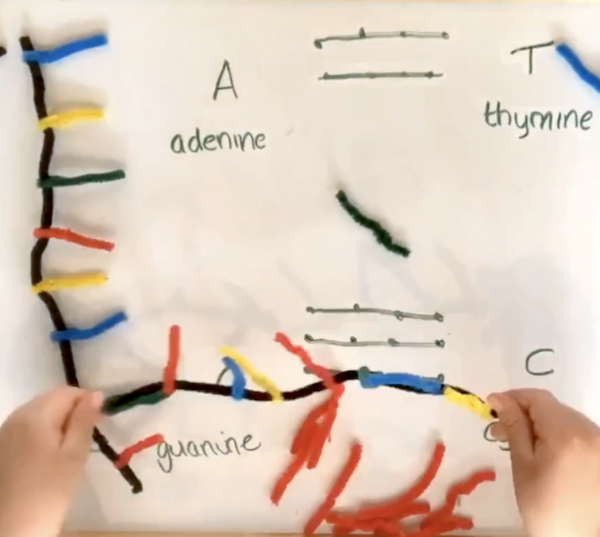 A
T
adenine
thymine
C
guanine